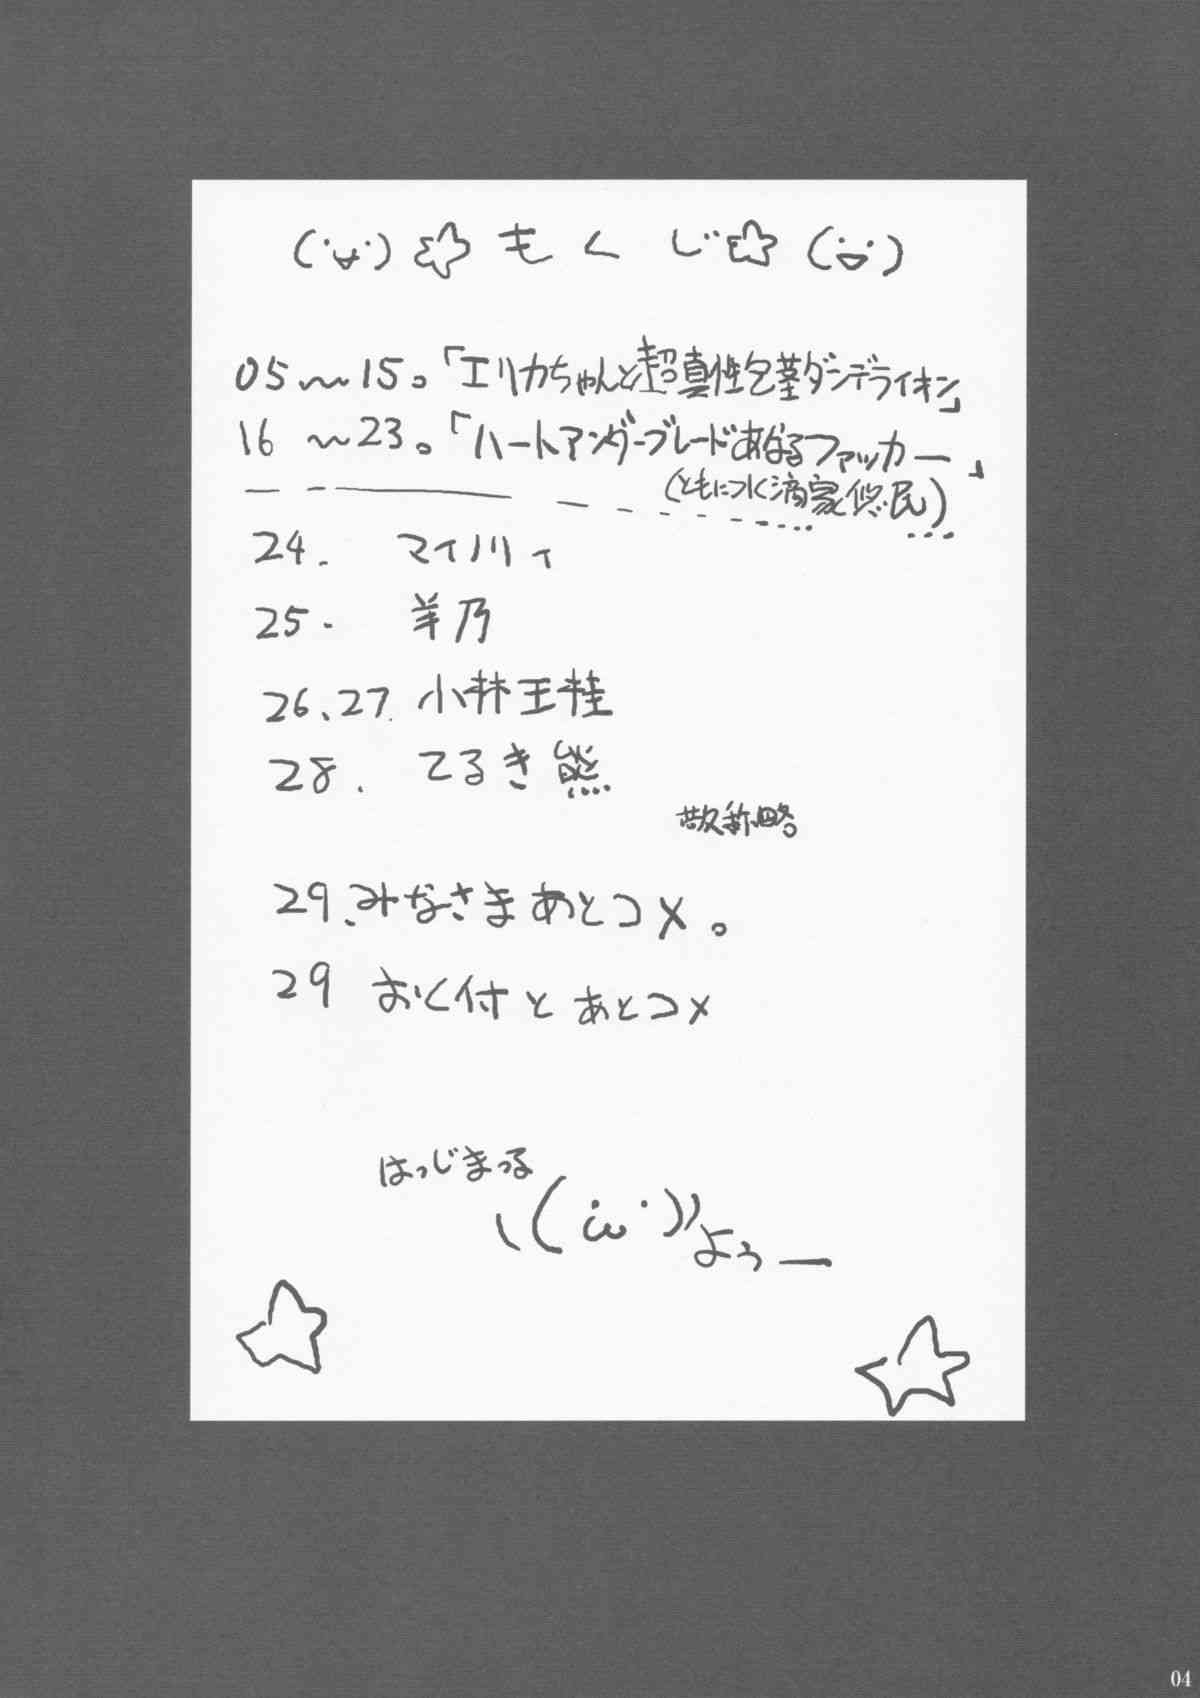 (˙ᴗ˙)☆もくじ☆(˙ᴗ˙)
05〜15。「エリカちゃんと超真性包茎ダンデライオン」
16 〜23。「ハートアンダーブレードあなるファッカー」
(ともにつくし滴家悠民)
24. マイノリィ
25. 羊乃
26、27. 小林王桂
28. てるき熊
敬称略。
29、みなさまあとコメ。
29 おく付とあとコメ
はっじまっる
ヽ(˙ω˙)ノよぅー
04